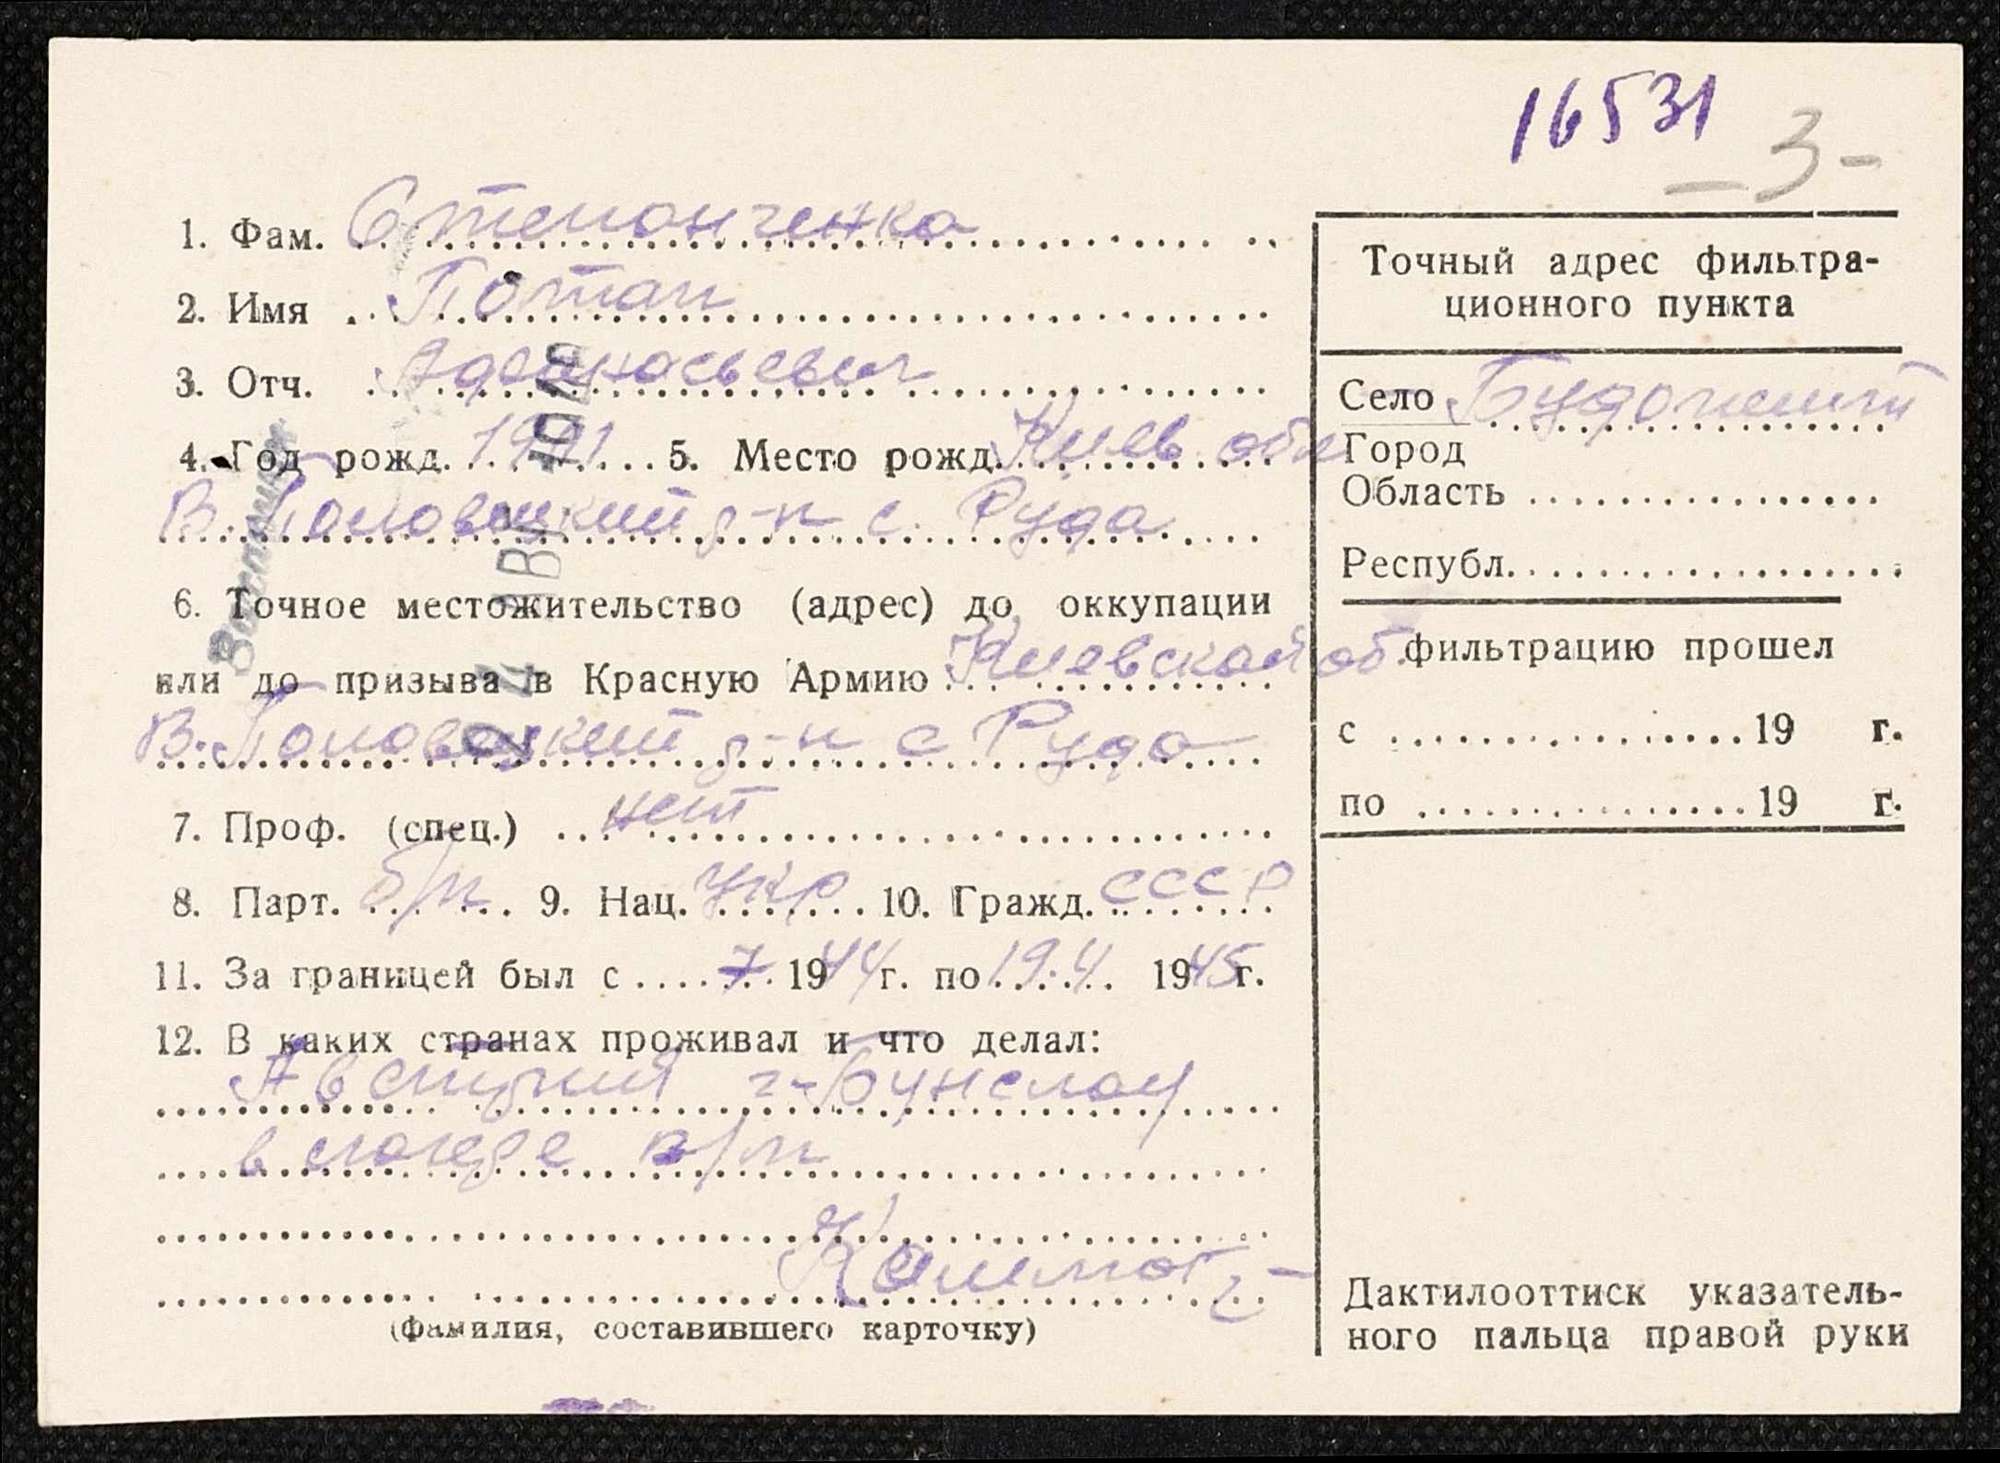 16531
– 3 –
1. Фам. Степанченко
2. Имя Потап
3. Отч. Афанасьевич
4. Год рожд. 1911 5. Место рожд. Киев обл
В. Половецкий р-н с. Руда
6. Точное местожительство (адрес) до оккупации
или до призыва в Красную Армию Киевской об.
В. Половецкий р-н с Руда
7. Проф. (спец.) нет
8. Парт. б/п 9. Нац. Укр 10. Гражд. СССР
11. За границей был с 7 1944 г. по 19.4 1945 г.
12. В каких странах проживал и что делал:
Австрия г. Бунслау
в лагере в/п
(Фамилия, составившего карточку)
Точный адрес фильтра-
ционного пункта
Село Будапешт
Город
Область
Республ.
фильтрацию прошел
с 19 г.
по 19 г.
Дактилооттиск указатель-
ного пальца правой руки